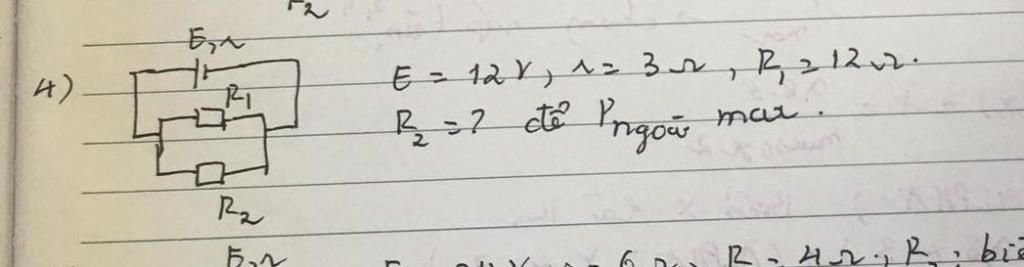 R2
4)
E, r
R1
R2
E = 12V, r = 3Ω, R1 = 12Ω.
R2 = ? để Pngoài max.
E, r
r = 6Ω, R = 4Ω